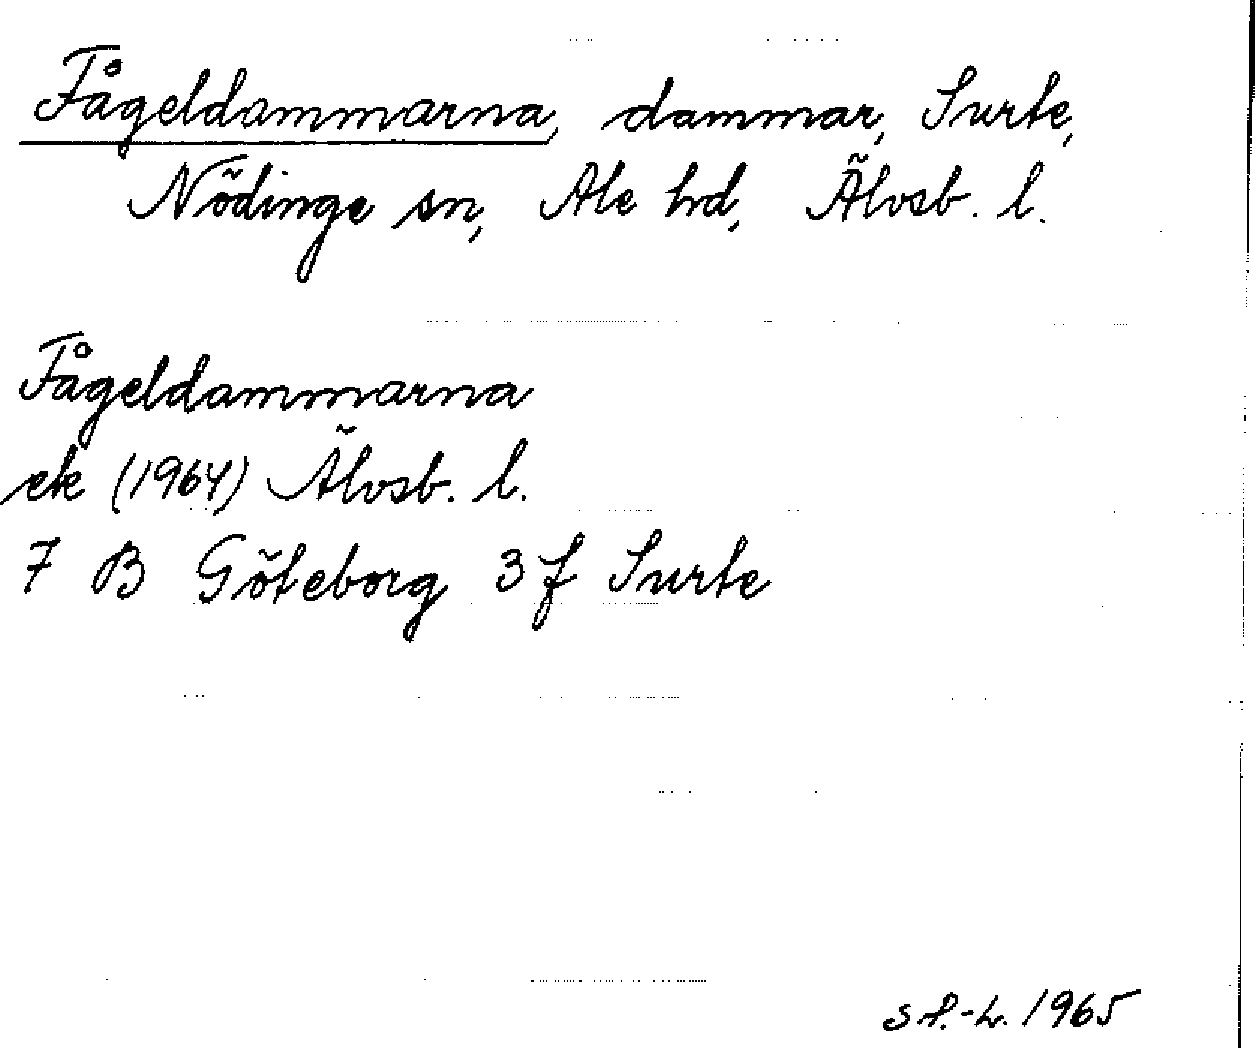 Fågeldammarna, dammar, Surte,
Nödinge sn, Ale hd, Älvsb. l.
Fågeldammarna
ek (1964) Älvsb. l.
7 B Göteborg 3 f Surte
1965